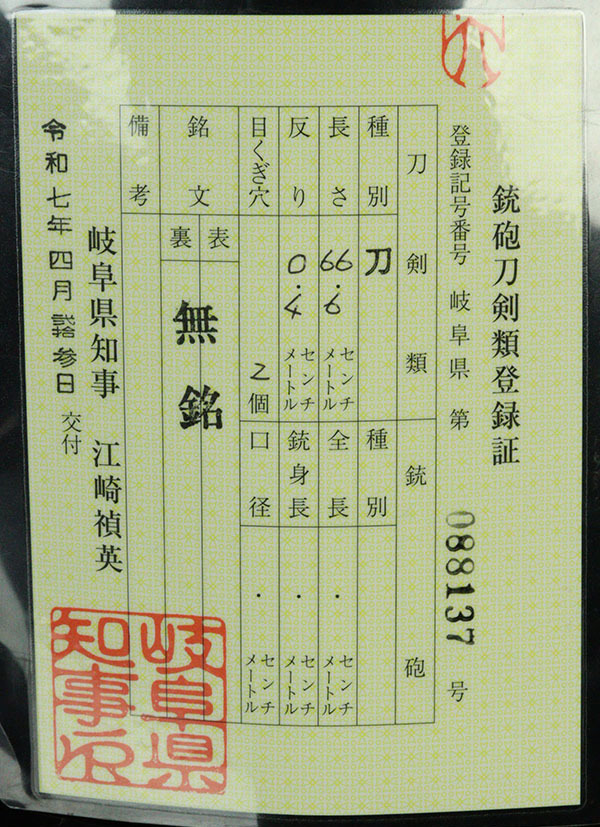 銃砲刀剣類登録証
登録記号番号 岐阜県 第 088137 号
刀剣類
銃砲
種別 刀
種別
長さ 66.6 センチメートル
全長 . センチメートル
反り 0.4 センチメートル
銃身長 . センチメートル
目くぎ穴 2個
口径 . センチメートル
銘文
表
裏
無銘
備考
岐阜県知事 江崎禎英
令和七年四月弐拾参日 交付
岐阜県
知事印